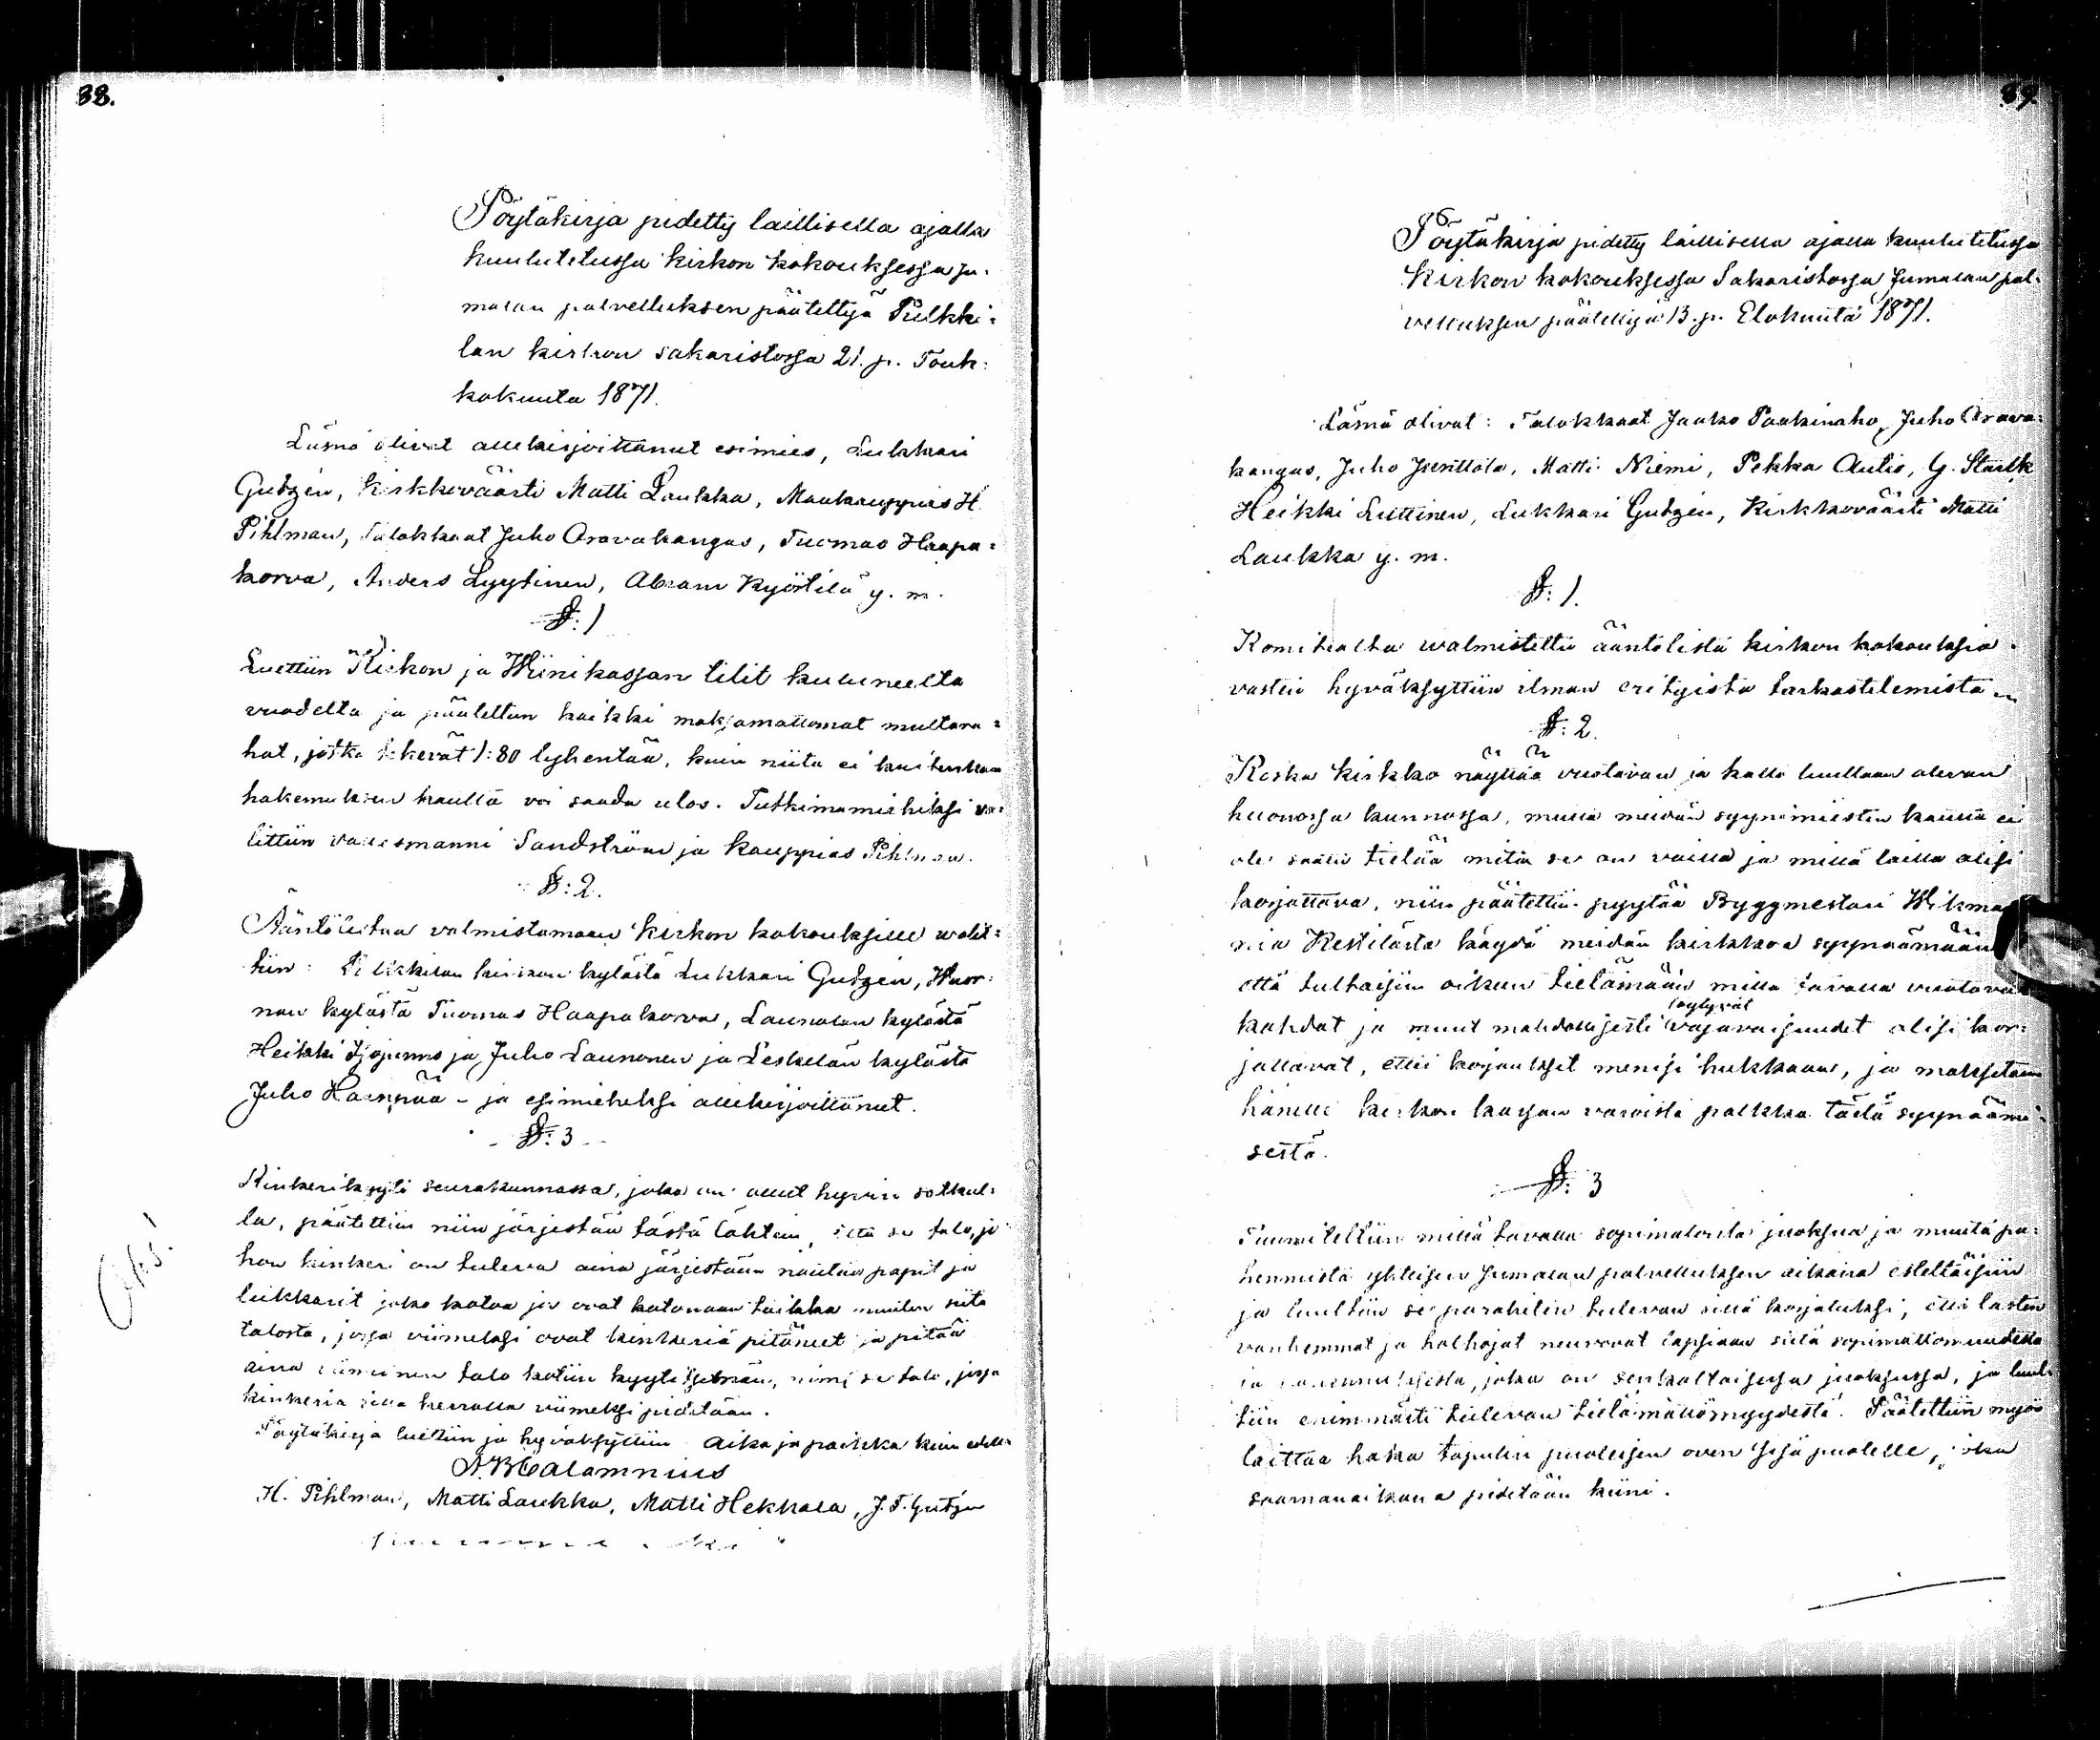 38.
Pöytäkirja pidetty laillisella ajalla
kuulutetussa kirkon kokouksessa Ju-
malan palvelluksen päätettyä Pulkki=
lan kirkon sakaristossa 21. p. Touk=
kokuuta 1871.
Läsnä olivat allekirjoittanut esimies, Lukkari
Gutzén, kirkkoväärti Matti Laukka, Maakauppias H.
Pihlman, talokkaat Juho Aravakangas, Tuomas Haapa=
korva, Anders Lyytinen, Abram Kyöstilä y. m.
§: 1
Luettiin Kirkon ja Wiinikassan tilit kuluneelta
vuodelta ja päätettiin kaikki maksamattomat multara=
hat, jotka tekevät 1:80 lyhentää, kuin niitä ei kuitenkaan
hakemuksen kautta voi saada ulos. Tutkimamiehiksi va=
littiin vallesmanni Sandström ja kauppias Pihlman.
§: 2.
Ääntölistaa valmistamaan kirkon kokouksille walit=
tiin: Pulkkilan kirkon kylästä Lukkari Gutzén, Wuor=
nan kylästä Tuomas Haapakorva, Launolan kylästä
Heikki ja Juho Launonen ja Leskelän kylästä
Juho Haanpää - ja esimieheksi allekirjoittanut.
§: 3
Kinkerikyyti seurakunnassa, joka on ollut hyvin sotkul=
la, päätettiin niin järjestää tästä lähtein, että se talo, jo=
hon kinkeri on tuleva aina järjestään noutaa papit ja
lukkarit joko kotoa jos ovat kotonaan taikka muuten siitä
talosta, jossa viimeksi ovat kinkeriä pitäneet ja pitää
aina viimeinen talo kotiin kyytitsemän, nimi se talo, jossa
kinkeria sillä kerralla viimeksi pidetään.
Pöytäkirja luettiin ja hyväksyttiin aika ja paikka kuin edellä
A. B. Calamnius
H. Pihlman, Matti Laukka, Matti Hekkala, J. F. Gutzén
39.
Pöytäkirja pidetty laillisella ajalla kuulutetussa
kirkon kokouksessa Sakaristossa Jumalan pal=
velluksen päätettyä 13. p. Elokuuta 1871.
Läsnä olivat: Talokkaat Jaako Paakinaho, Juho Arava=
kangas, Juho Junttola, Matti Niemi, Pekka Autio, G. Starck
Heikki Luttinen, Lukkari Gutzén, Kirkkoväärti Matti
Laukka y. m.
§: 1.
Komitealta walmistettu ääntölistä kirkon kokouksia
vasten hyväksyttiin ilman erityistä tarkastelemista
§: 2.
Koska kirkko näyttää vuotavan ja katto luullaan olevan
huonossa kunnossa, mutta meidän syynimiesten kautta ei
ole saatu tietää mitä se on vailla ja millä lailla olisi
korjattava, niin päätettiin pyytää Byggmestari Wikma
nia Kestilästä käydä meidän kirkkoa syynäämään
että tultaisiin oikeen tietämään millä tavalla vuotavat
löytyvät
kohdat ja muut mahdollisesti vajavaisuudet olisi kor=
jattavat, ettei korjaukset menisi hukkaan, ja maksetaan
hänelle kirkon kassan varoista palkka tästä syynäämi=
sestä.
§: 3
Tuumiteltiin millä tavalla sopimatonta juoksua ja muuta pa=
hennusta yhteisen Jumalan palvelluksen aikana esteltäisiin
ja luultiin se parahiten tulevan sillä korjatuksi, että lasten
vanhemmat ja holhojat neuvovat lapsiaan siitä sopimattomuudesta
ja pahennuksesta, joka on senkaltaisessa juoksussa, ja luul=
tiin enimmästi tulevan tietämättömyydestä. Päätettiin myös
laittaa haka tapulin puoleisen oven sisä puolelle, joka
saarnan aikana pidetään kiini.